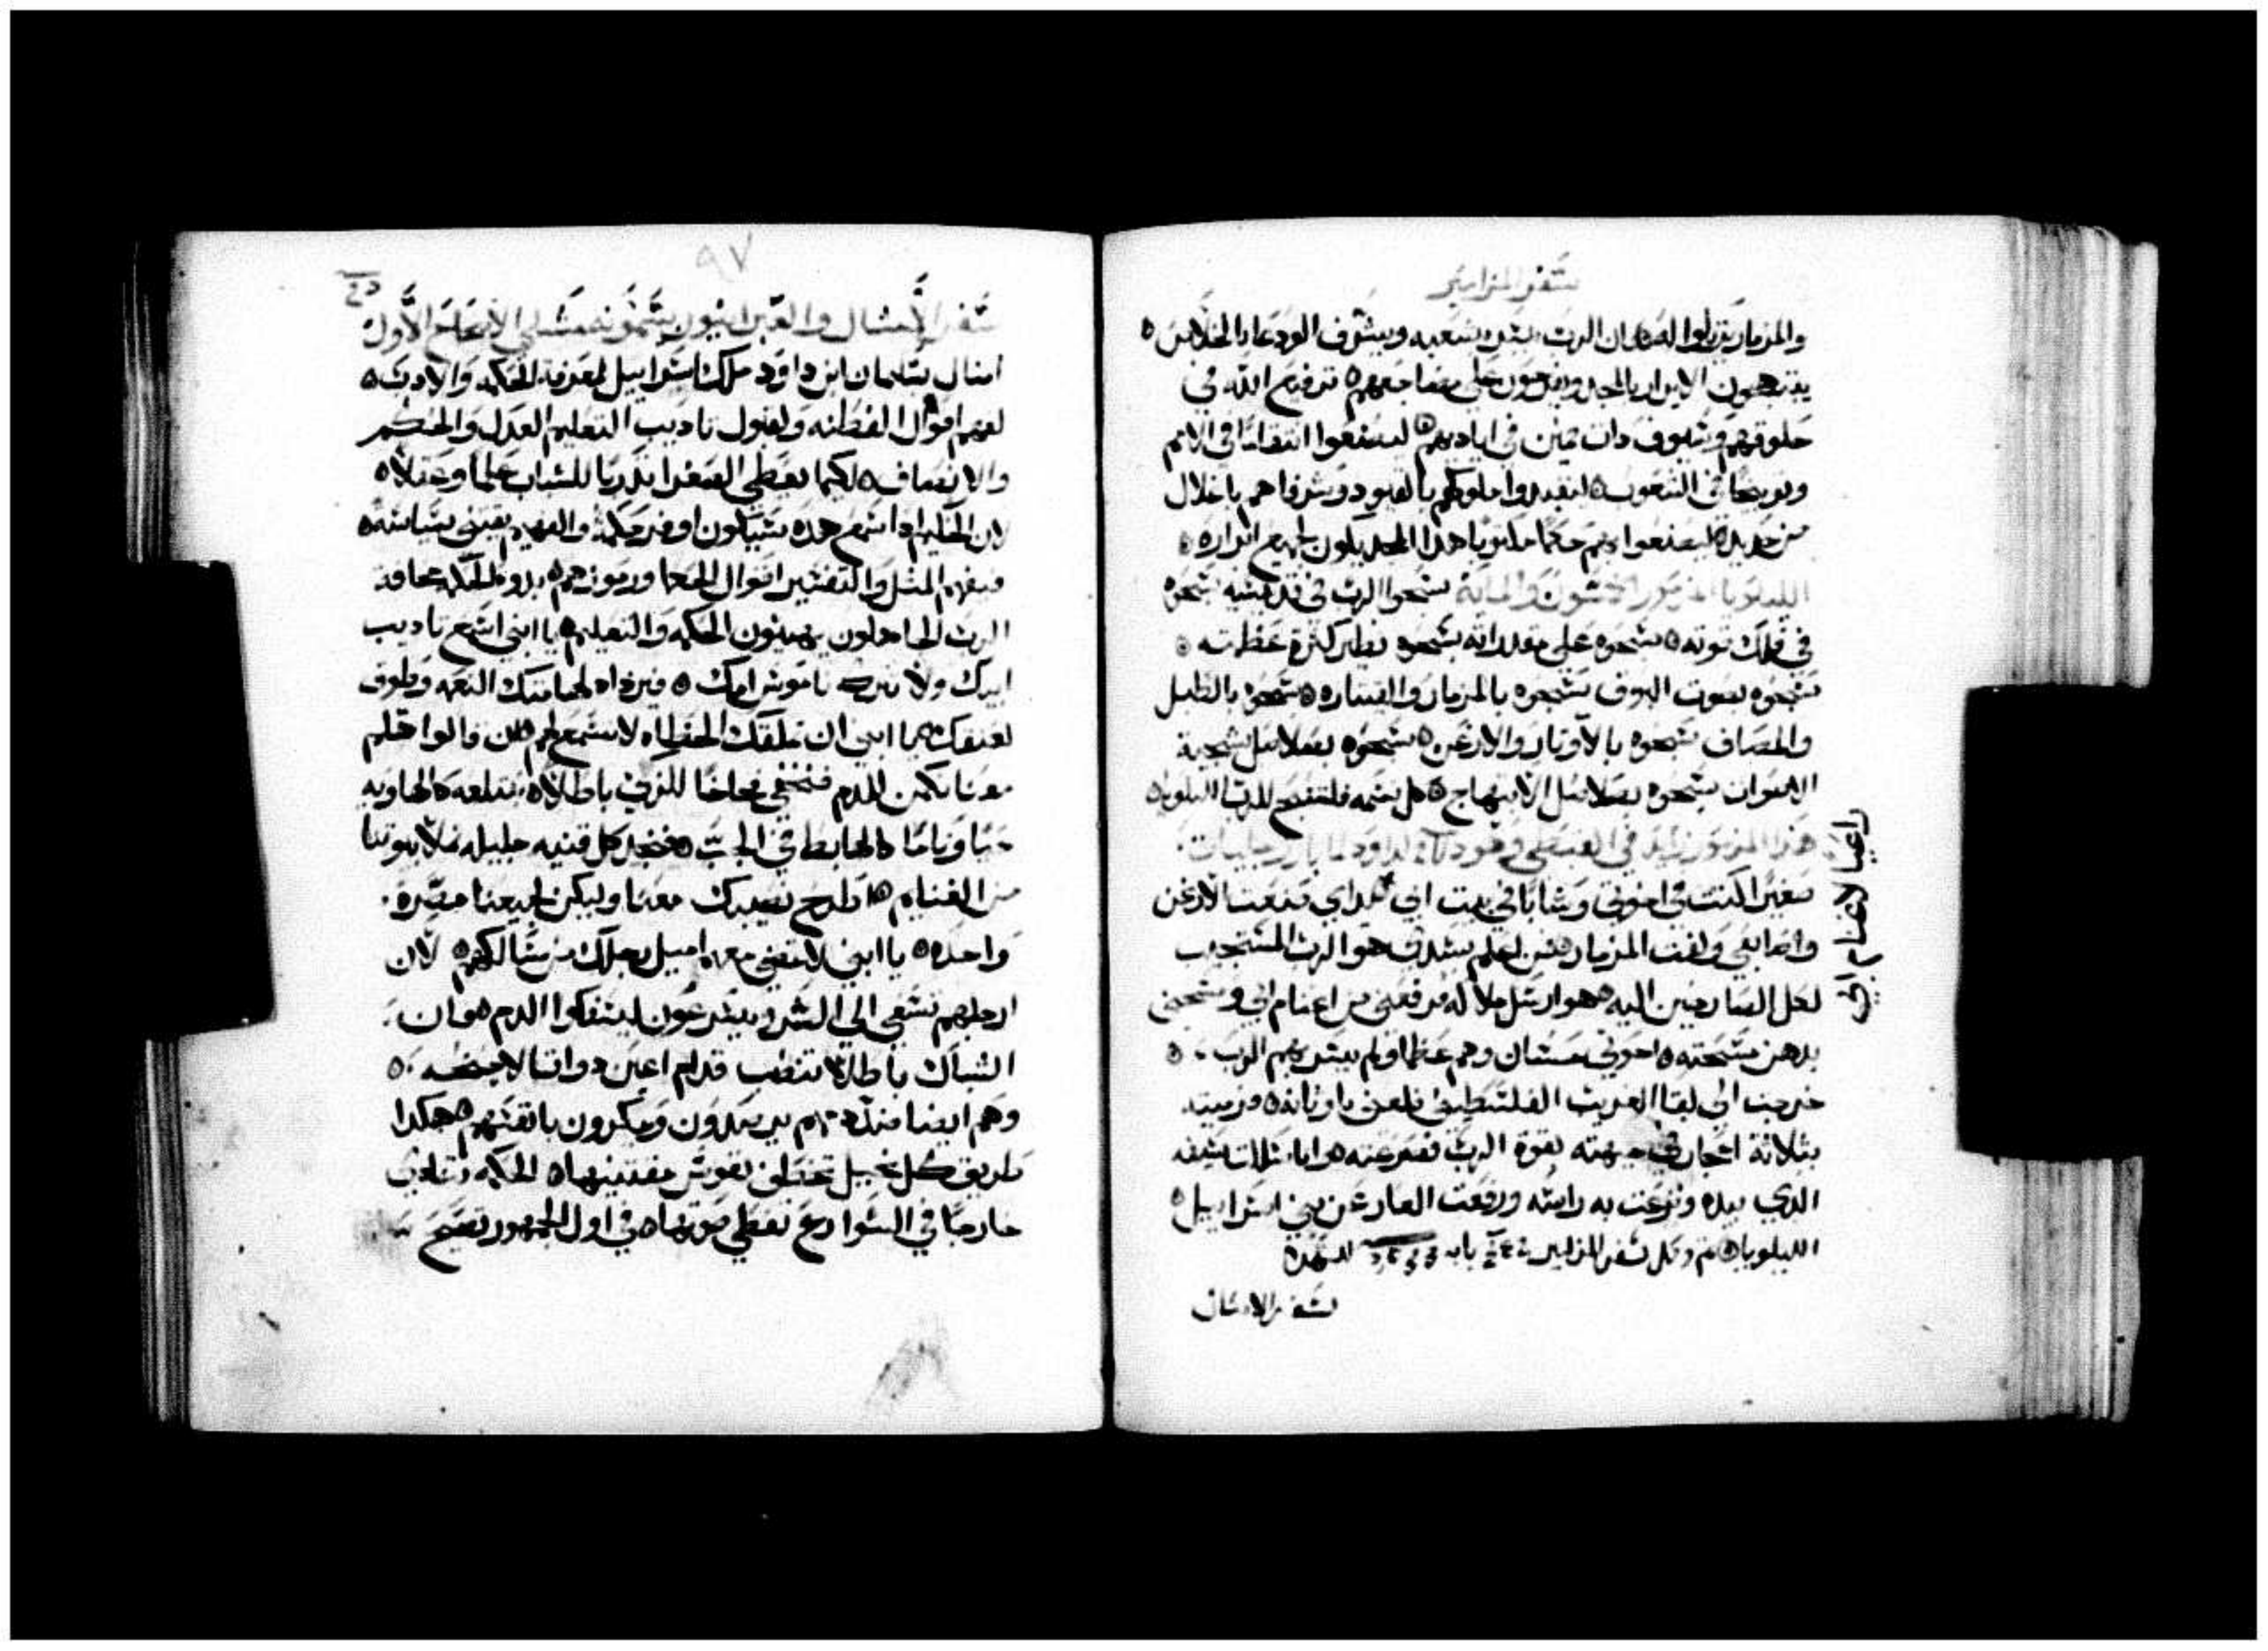 سفر المزامير
والمزمار يرتلوا له ه لان الرب يسر بشعبه ويشرف الودعا بالخلاص ه
يبتهجون الابرار بالمجد ويفرحون على مضاجعهم ه ترفيع الله في
حلوقهم وسيوف ذات فمين في اياديهم ه ليصنعوا انتقاما في الامم
وتوبيخا في الشعوب ه ليقيدوا ملوكهم بالقيود وشرفاهم باغلال
من حديد ه ليصنعوا بهم حكما مكتوبا هذا المجد يكون لجميع ابراره ه
الليلويا المزمور الخمسون والماية سبحوا الرب في قديسيه سبحوه
في فلك قوته ه سبحوه على مقدراته سبحوه نظير كثرة عظمته ه
سبحوه بصوت البوق سبحوه بالمزمار والقيتاره ه سبحوه بالطبل
والمصاف سبحوه بالاوتار والارغن ه سبحوه بصلاصل شجية
الاصوات سبحوه بصلاصل الابتهاج ه كل نسمه فلتسبح للرب الليلويا ه
هذا المزمور زايد في القبطي وهو لداود لما بارز جليات
صغيرا كنت في اخوتي وشابا في بيت ابي يداي صنعت الارغن
راعيا لاغنام ابي
واصابعي ولفت المزمار ه من اعلم سيدي هو الرب المستجيب
لكل الصارخين اليه ه هو ارسل ملاكه ورفعني من اغنام ابي ومسحني
بدهن مسحته ه اخوتي حسان وهم عظما ولم يسر بهم الرب ه
خرجت الي لقا الغريب الفلسطيني فلعني باوثانه ه فرميته
بثلاثة احجار في جبهته بقوة الرب فصرعته ه وانا استللت سيفه
الذي بيده ونزعت به راسه ورفعت العار عن بني اسراييل ه
الليلويا ه تم وكمل سفر المزامير في بابه للشهدة
سفر الامثال
٩٧
سفر الامثال والعبرانيون يسمونه مشلي الاصحاح الاول
امثال سليمان ابن داود ملك اسراييل لمعرفة الحكمه والادب ه
لفهم اقوال الفطنه ولقبول تاديب التعليم العدل والحكم
والانصاف ه لكيما يعطي الصغرا تدربا للشباب علما وعقلا ه
لان الحكيم اذا سمع هذه سيكون اوفر حكمة والفهيم يقتني سياسه ه
فيفهم المثل والتفسير اقوال الحكما ورموزهم ه بدو الحكمه مخافة
الرب الجاهلون يهينون الحكمه والتعليم ه يا ابني اسمع تاديب
ابيك ولا ترفض ناموس امك ه فيزداد لهامتك النعمه وطوق
لعنقك ه يا ابني ان تملقك الخطاه لا تسمع لهم ه ان قالوا هلم
معنا نكمن للدم فنخفي فخاخا للزكي باطلا ه نبتلعه كالهاويه
حيا وتاما كالهابط في الجب ه فنجد كل قنيه جليله نملا بيوتنا
من الغنايم ه اطرح نصيبك معنا وليكن لجميعنا صرة
واحده ه يا ابني لا تمضي معهم اميل رجلك من مسالكهم ه لان
ارجلهم تسعي الي الشر ويسرعون ليسفكوا الدم ه وان
الشباك باطلا تنصب قدام اعين ذوات الاجنحه ه
وهم ايضا ضد دمهم يرصدون ويمكرون بانفسهم ه هكذا
طريق كل بخيل تختطف نفوس مقتنيها ه الحكمه تنادي
خارجا في الشوارع تعطي صوتها ه في اول الجمهور تصيح